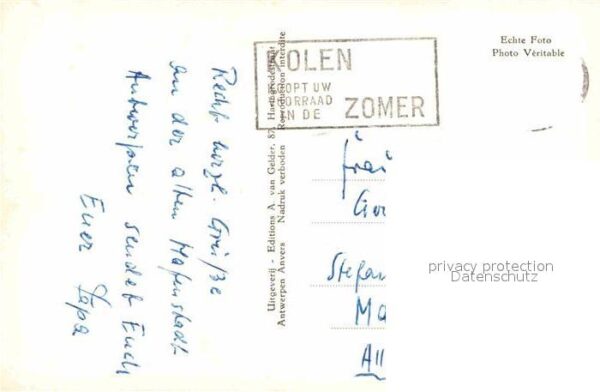 Echte Foto
Photo Véritable
OLEN
OOPT UW
OORRAAD
IN DE
ZOMER
Recht herzl. Grüße
an der alten Hafenstadt
Antwerpen sendet Euch
Euer Papa
Uitgeverij - Editions A. van Gelder, 87,
Antwerpen Anvers Nadruk verboden Reproduction interdite
Ger
Stefan
Ma
All
privacy protection
Datenschutz